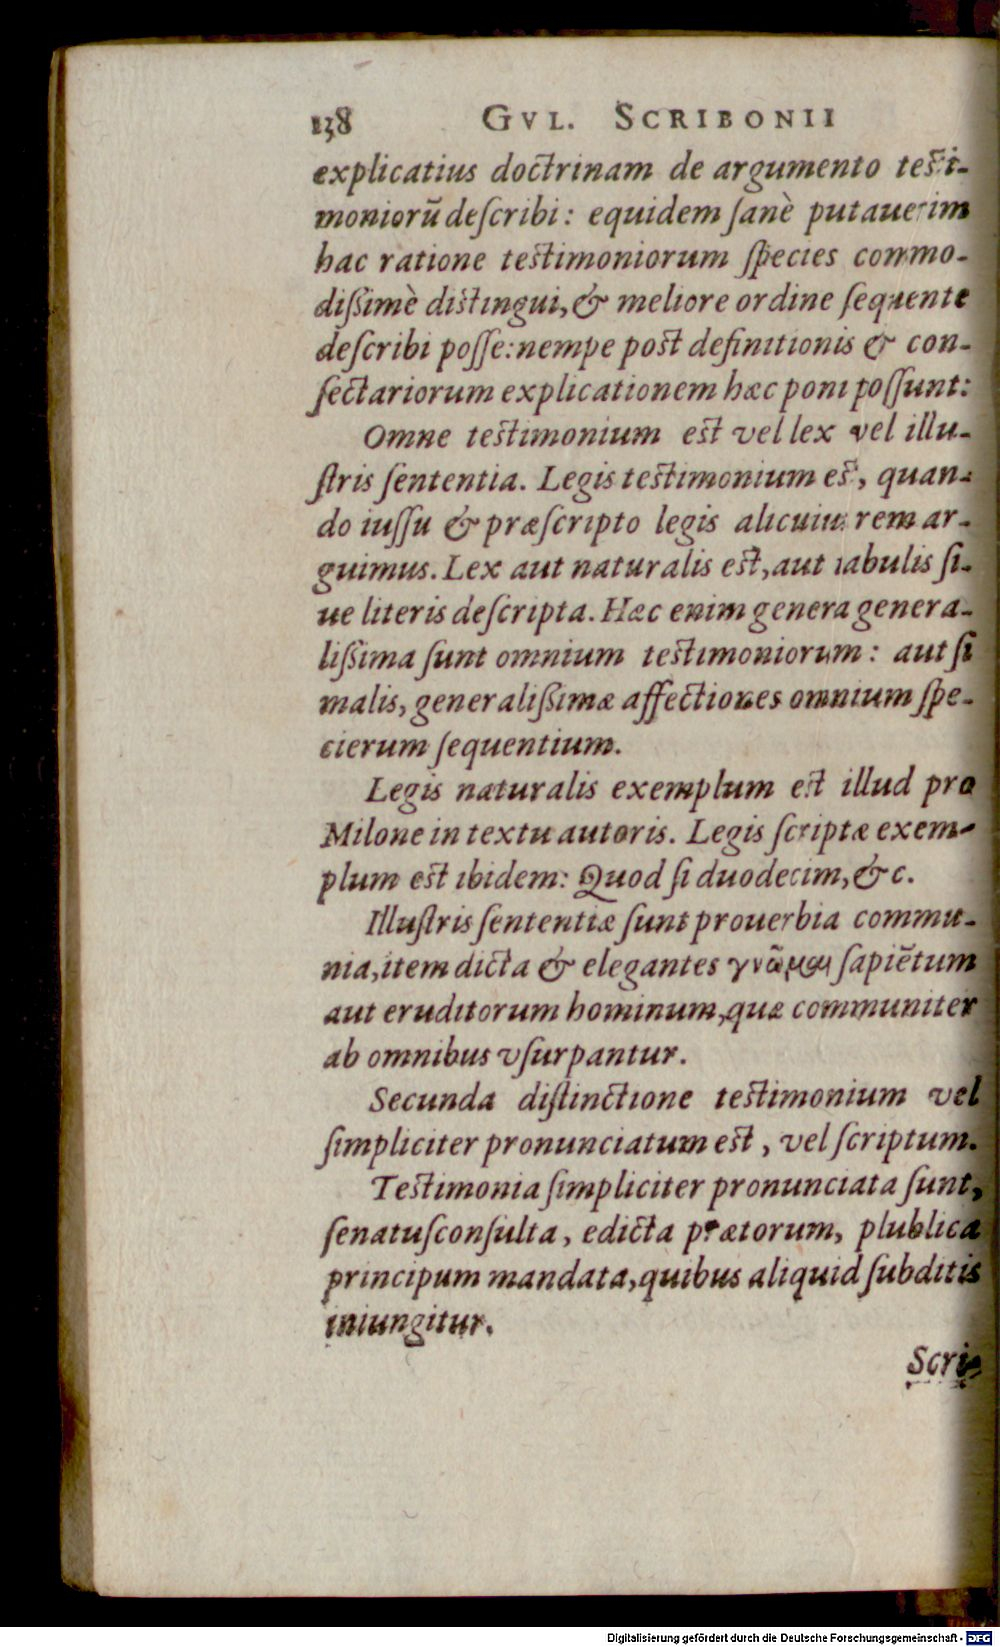 138 GVL. SCRIBONII
explicatius doctrinam de argumento testi-
moniorū deſcribi: equidem ſanè putauerim
hac ratione testimoniorum ſpecies commo-
diſſimè distingui, & meliore ordine ſequente
deſcribi poſſe: nempe post definitionis & con-
ſectariorum explicationem hæc poni poſſunt:
Omne testimonium est vel lex vel illu-
ſtris ſententia. Legis testimonium est, quan-
do iuſſu & præſcripto legis alicuius rem ar-
guimus. Lex aut naturalis est, aut tabulis ſi-
ue literis deſcripta. Hæc enim genera genera-
liſſima ſunt omnium testimoniorum: aut ſi
malis, generaliſſimæ affectiones omnium ſpe-
cierum ſequentium.
Legis naturalis exemplum est illud pro
Milone in textu autoris. Legis ſcriptæ exem-
plum est ibidem: Quod ſi duodecim, &c.
Illuſtris ſententiæ ſunt prouerbia commu-
nia, item dicta & elegantes γνῶμαι ſapiētum
aut eruditorum hominum, quæ communiter
ab omnibus vſurpantur.
Secunda diſtinctione testimonium vel
ſimpliciter pronunciatum est, vel ſcriptum.
Testimonia ſimpliciter pronunciata ſunt,
ſenatuſconſulta, edicta prætorum, plublica
principum mandata, quibus aliquid ſubditis
iniungitur.
Scri-
Digitalisierung gefördert durch die Deutsche Forschungsgemeinschaft - DFG